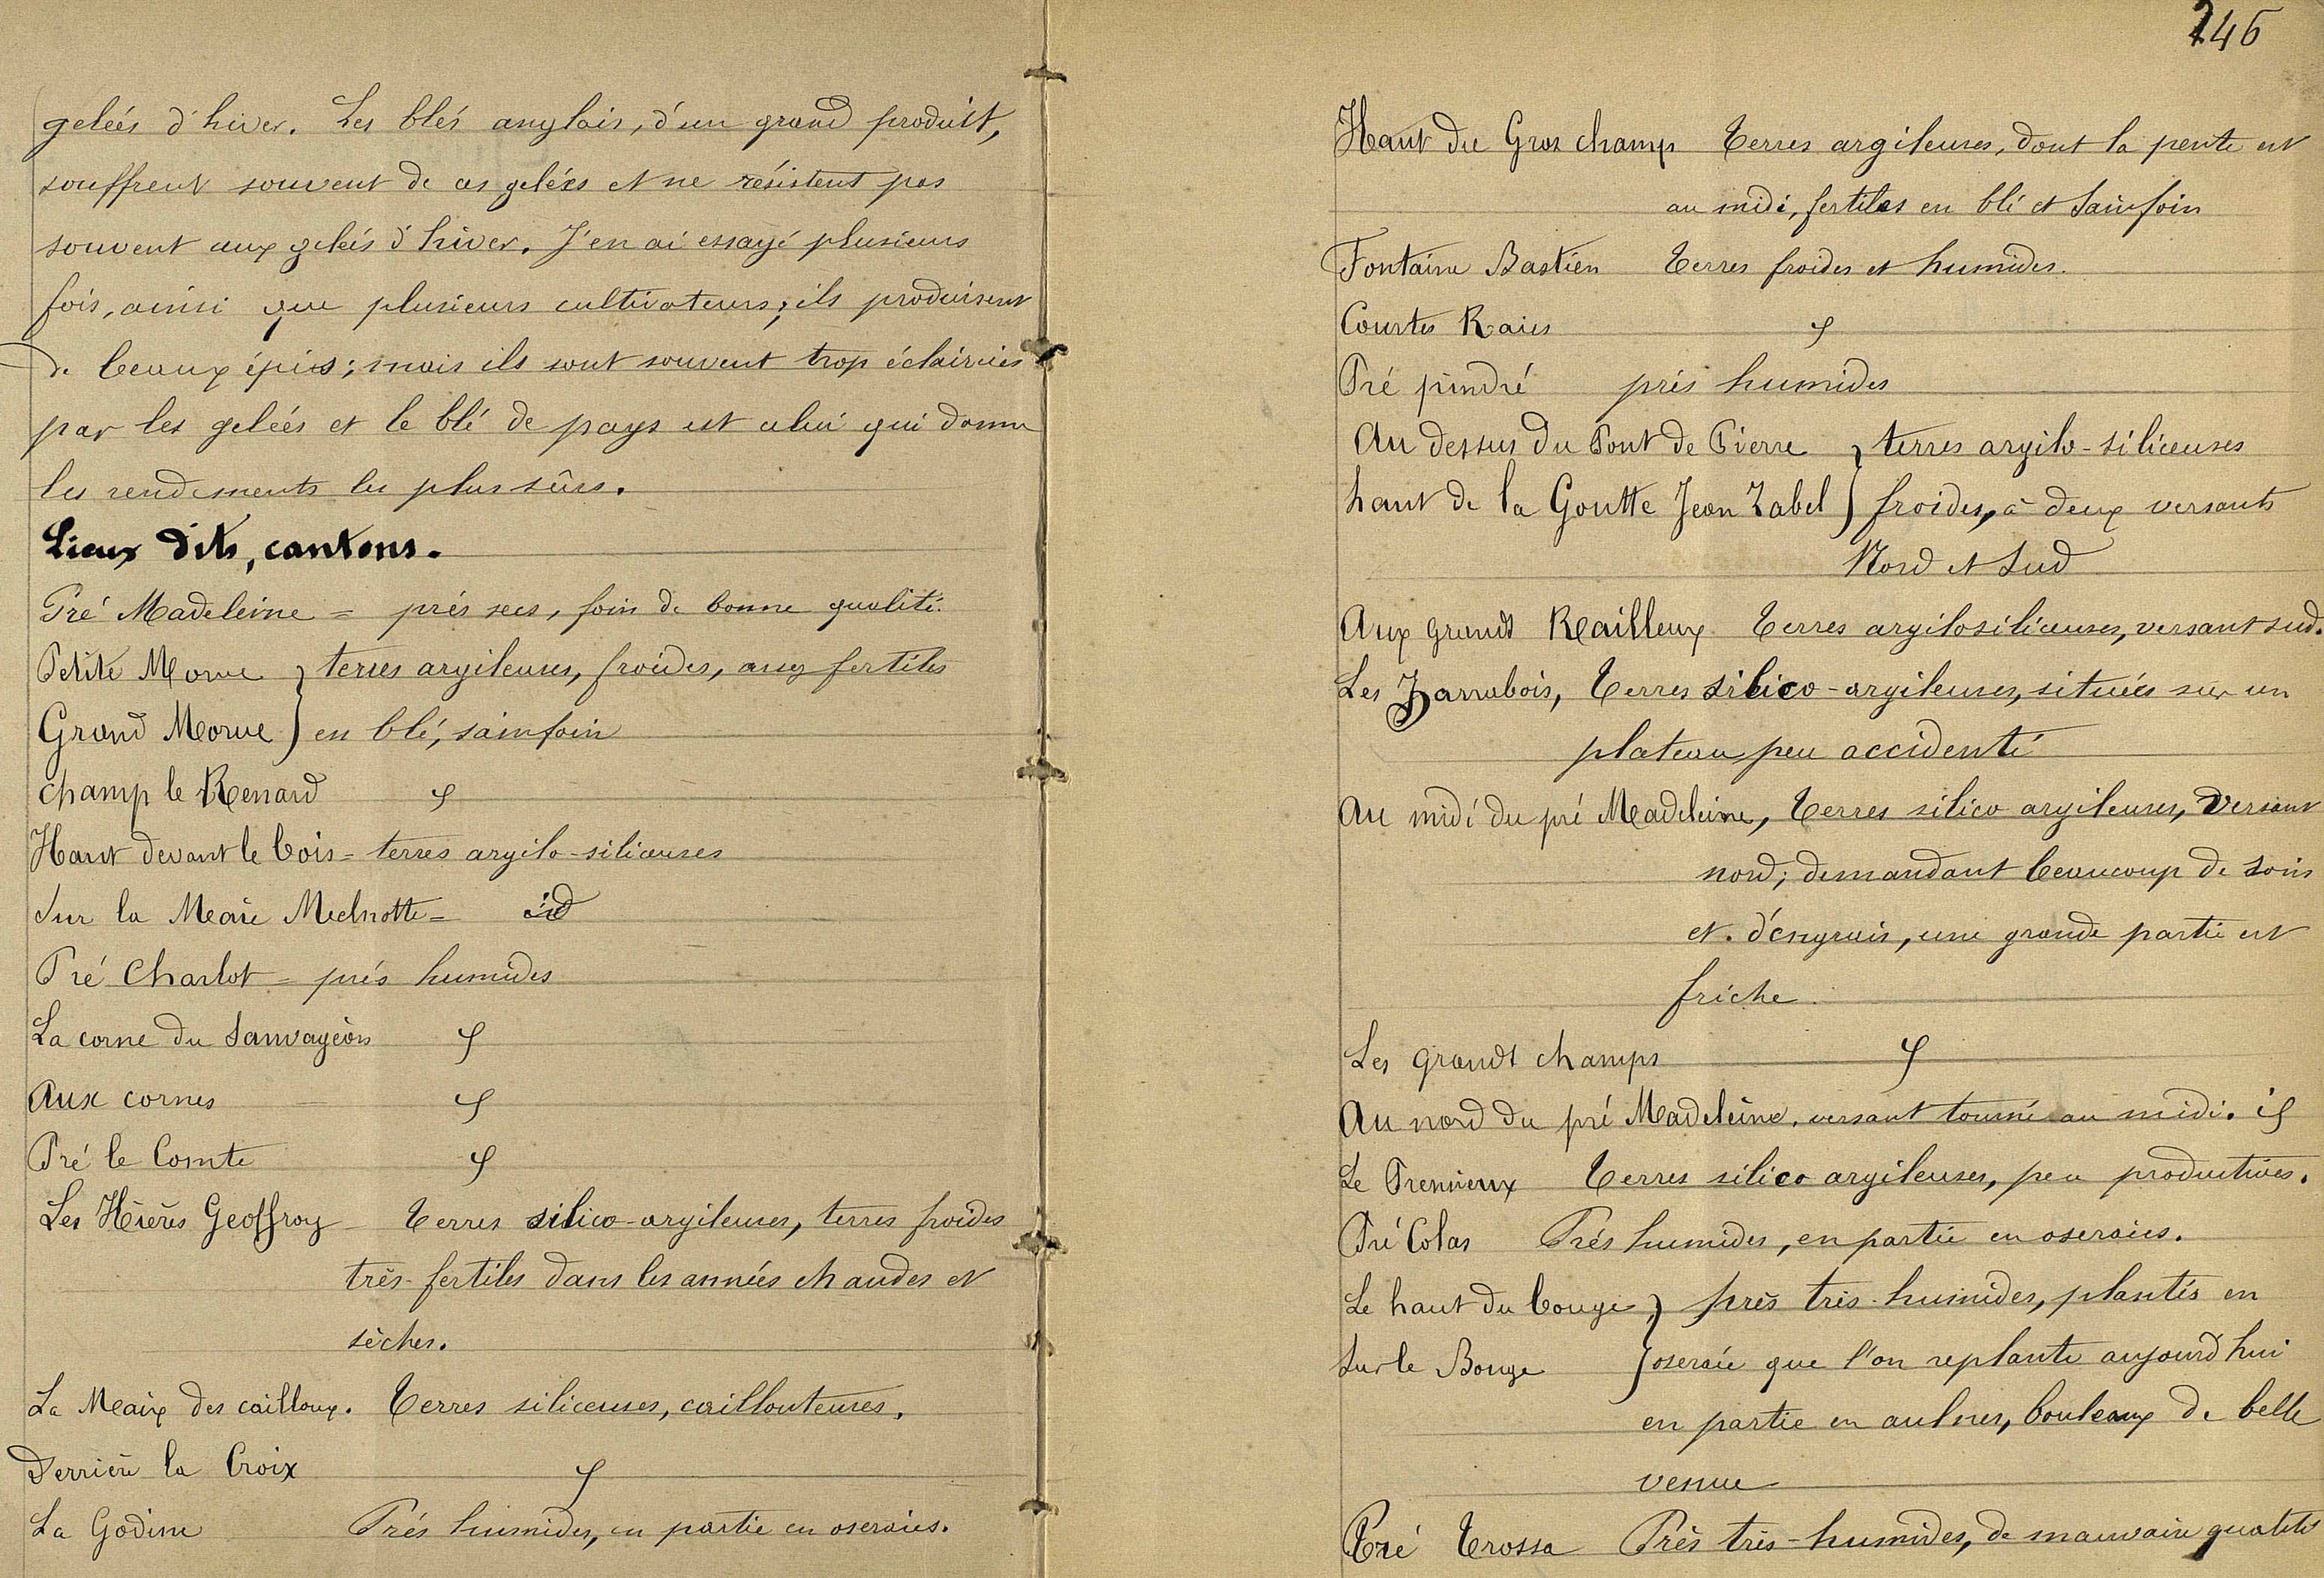 gelées d'hiver. Les blés anglais, d'un grand produit,
souffrent souvent de ces gelées et ne résistent pas
souvent aux gelées d'hiver. J'en ai essayé plusieurs
fois, ainsi que plusieurs cultivateurs; ils produisent
de beaux épis; mais ils sont souvent trop éclaircies
par les gelées et le blé de pays est celui qui donne
les rendements les plus sûrs.
Lieux dits, cantons.
Pré Madeleine = prés secs, foin de bonne qualité.
Petite Morue } terres argileuses, froides, assez fertiles
Grand Morue } en blé, sainfoin
champ le Renard φ
Haut devant le bois = terres argilo-siliceuses
Sur la Meaie Melnotte = id
Pré Charlot = prés humides
La corne du Sauvageon φ
Aux cornes φ
Pré le Comte φ
Les Hières Geoffroy Terres silico-argileuses, terres froides
très-fertiles dans les années chaudes et
sèches.
La Meaix des cailloux. Terres siliceuses, caillouteuses.
Derrière la Croix φ
La Godine Prés humides, en partie en oseraies.
246
Haut du Gros champ Terres argileuses, dont la pente est
au midi, fertiles en blé et Sainfoin
Fontaine Bastien Terres froides et humides.
Courtes Raies φ
Pré pindré prés humides
Au dessus du Pont de Pierre } terres argilo-siliceuses
haut de la Goutte Jean Zabel } froides, à deux versants
Nord et Sud
Aux grands Railleux Terres argilosiliceuses, versant sud.
Les Zarrabois, Terres silico-argileuses, situées sur un
plateau peu accidenté
Au midi du pré Madeleine, Terres silico argileuses, Versant
nord; demandant beaucoup de soins
et d'engrais, une grande partie est
friche.
Les grands champs φ
Au nord du pré Madeleine, versant tourné au midi. iφ
Le Terres silico argileuses, peu productives.
Pré Colas Prés humides, en partie en oseraies.
Le haut du bouge } prés très-humides, plantés en
Sur le Bouge } oseraie que l'on replante aujourd'hui
en partie en aulnes, bouleaux de belle
venue
Pré Trossa Prés très-humides, de mauvaise qualité